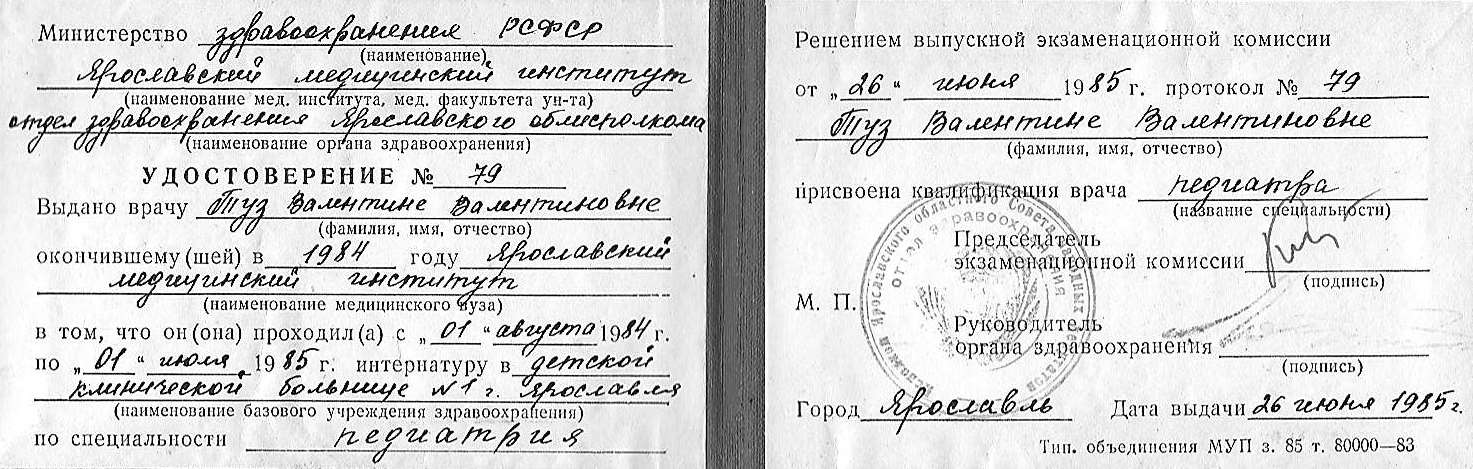 Министерство здравоохранения РСФСР
(наименование)
Ярославский медицинский институт
(наименование мед. института, мед. факультета ун-та)
отдел здравоохранения Ярославского облисполкома
(наименование органа здравоохранения)
УДОСТОВЕРЕНИЕ № 79
Выдано врачу Туз Валентине Валентиновне
(фамилия, имя, отчество)
окончившему (шей) в 1984 году Ярославский
медицинский институт
(наименование медицинского вуза)
в том, что он (она) проходил (а) с „01" августа 1984 г.
по „01" июля 1985 г. интернатуру в детской
клинической больнице №1 г. Ярославля
(наименование базового учреждения здравоохранения)
по специальности педиатрия
Решением выпускной экзаменационной комиссии
от „26" июня 1985 г. протокол № 79
Туз Валентине Валентиновне
(фамилия, имя, отчество)
присвоена квалификация врача педиатра
(название специальности)
Председатель
экзаменационной комиссии
(подпись)
М. П.
Руководитель
органа здравоохранения
(подпись)
Город Ярославль Дата выдачи 26 июня 1985 г.
Тип. объединения МУП з. 85 т. 80000—83
Ярославского областного Совета народных
отдел здравоохранения